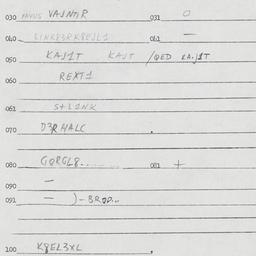 030 VAJNTR 031 O
040 041 —
050 KAJ1T KAJT /QED KAJ1T
060 REXT1
061 S+L1NK
070 D3RHALC .
080 GQRGL8........ 081 +
090 —
091 — )-BROD...
100 K8EL3XL .